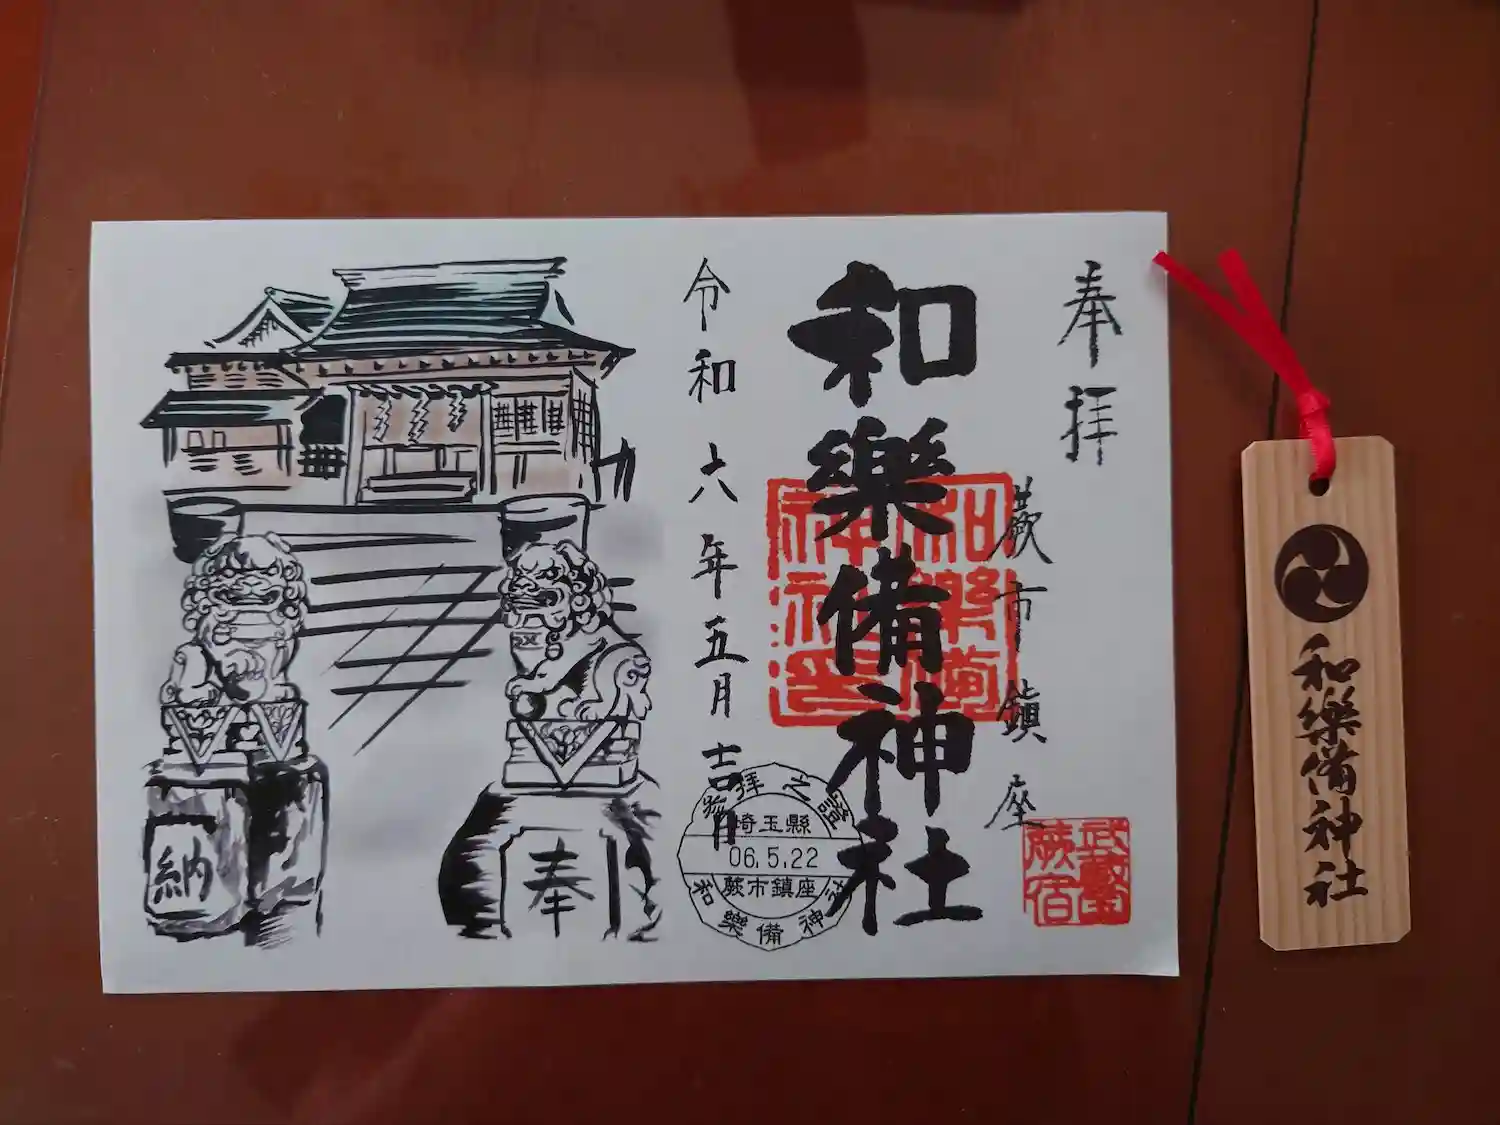 奉拝
蕨市鎮座
武蔵国
蕨宿
和樂備神社
和樂備
神社印
令和六年五月吉日
参拝之證
埼玉縣
06.5.22
蕨市鎮座
和樂備神社
奉
納
和樂備神社